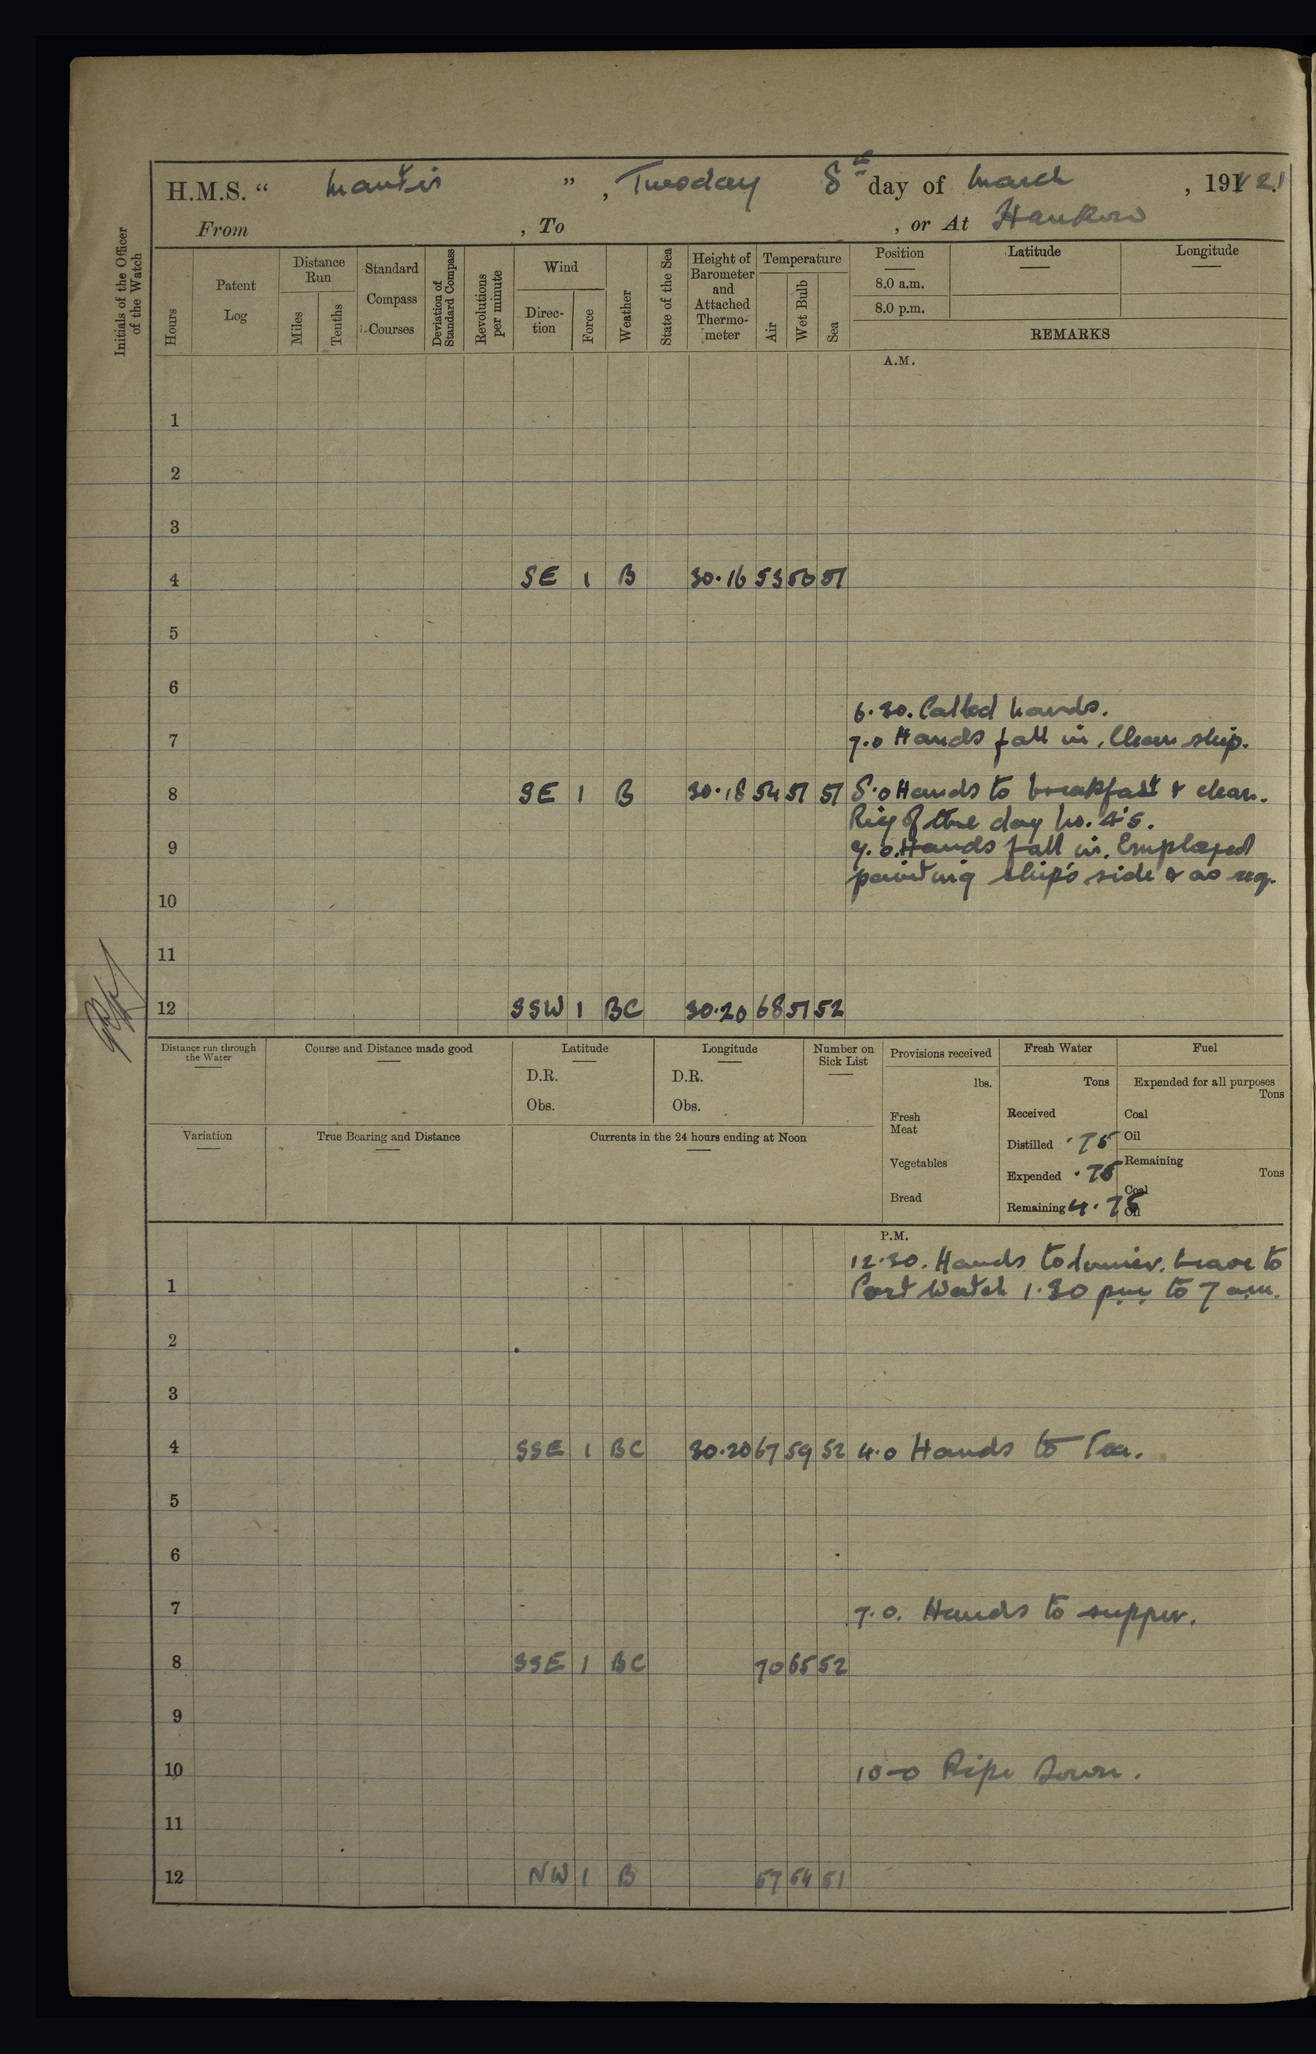 H.M.S. " Mantis ", Tuesday 8th day of March, 191 21.
From , To , or At Hankow
Initials of the Officer of the Watch
Hours
Patent Log
Distance Run
Miles
Tenths
Standard Compass Courses
Deviation of Standard Compass
Revolutions per minute
Wind
Direc-tion
Force
Weather
State of the Sea
Height of Barometer and Attached Thermo-meter
Temperature
Air
Wet Bulb
Sea
Position
8.0 a.m.
8.0 p.m.
Latitude
Longitude
REMARKS
A.M.
1
2
3
4 SE 1 B 30.16 53 50 51
5
6
6.30. Called hands.
7 7.0 Hands fall in, Clean ship.
8 SE 1 B 30.18 54 51 51 8.0 Hands to breakfast & clean.
Rig of the day No. 4's.
9 9.0. Hands fall in. Employed
painting ship's side & as req.
10
11
12 SSW 1 BC 30.20 68 51 52
Distance run through the Water
Course and Distance made good
Latitude
D.R.
Obs.
Longitude
D.R.
Obs.
Number on Sick List
Provisions received
lbs.
Fresh Meat
Vegetables
Bread
Fresh Water
Tons
Received
Distilled .75
Expended .75
Remaining 4.75
Fuel
Expended for all purposes
Tons
Coal
Oil
Remaining
Tons
Coal
Oil
Variation
True Bearing and Distance
Currents in the 24 hours ending at Noon
P.M.
12.30. Hands to dinner. Leave to
1 Port Watch 1.30 pm to 7 am.
2
3
4 SSE 1 BC 30.20 67 59 52 4.0 Hands to Tea.
5
6
7 7.0. Hands to supper.
8 SSE 1 BC 70 65 52
9
10 10-0 Pipe down.
11
12 NW 1 B 57 54 51